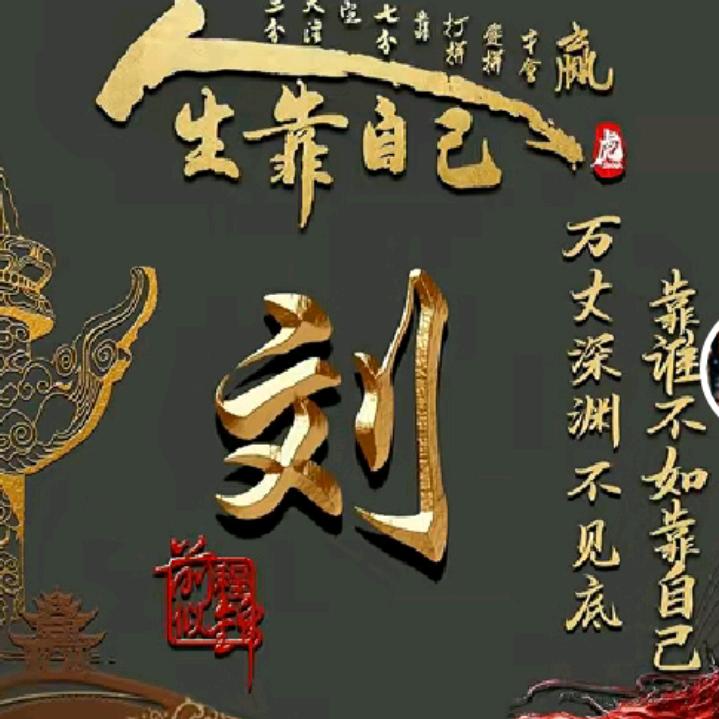 人生靠自己
三分天注定 七分靠打拼 爱拼才会赢
虎
万丈深渊不见底
靠谁不如靠自己
刘
前程似锦